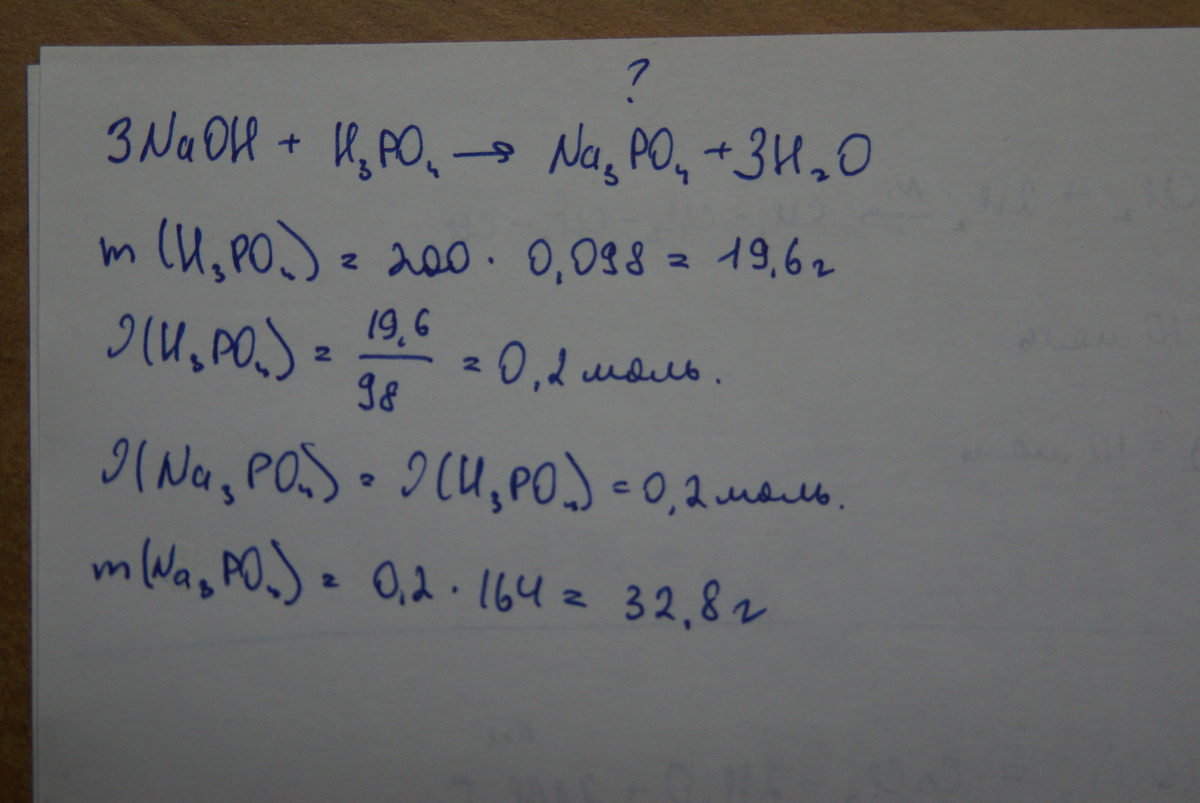 ?
3NaOH + H₃PO₄ → Na₃PO₄ + 3H₂O
m(H₃PO₄) = 200 · 0,098 = 19,6 г
ν(H₃PO₄) = 19,6/98 = 0,2 моль.
ν(Na₃PO₄) = ν(H₃PO₄) = 0,2 моль.
m(Na₃PO₄) = 0,2 · 164 = 32,8 г